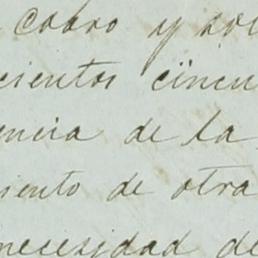 cobro y sol
cientos cincu
encia de la
iento de otra
necesidad de